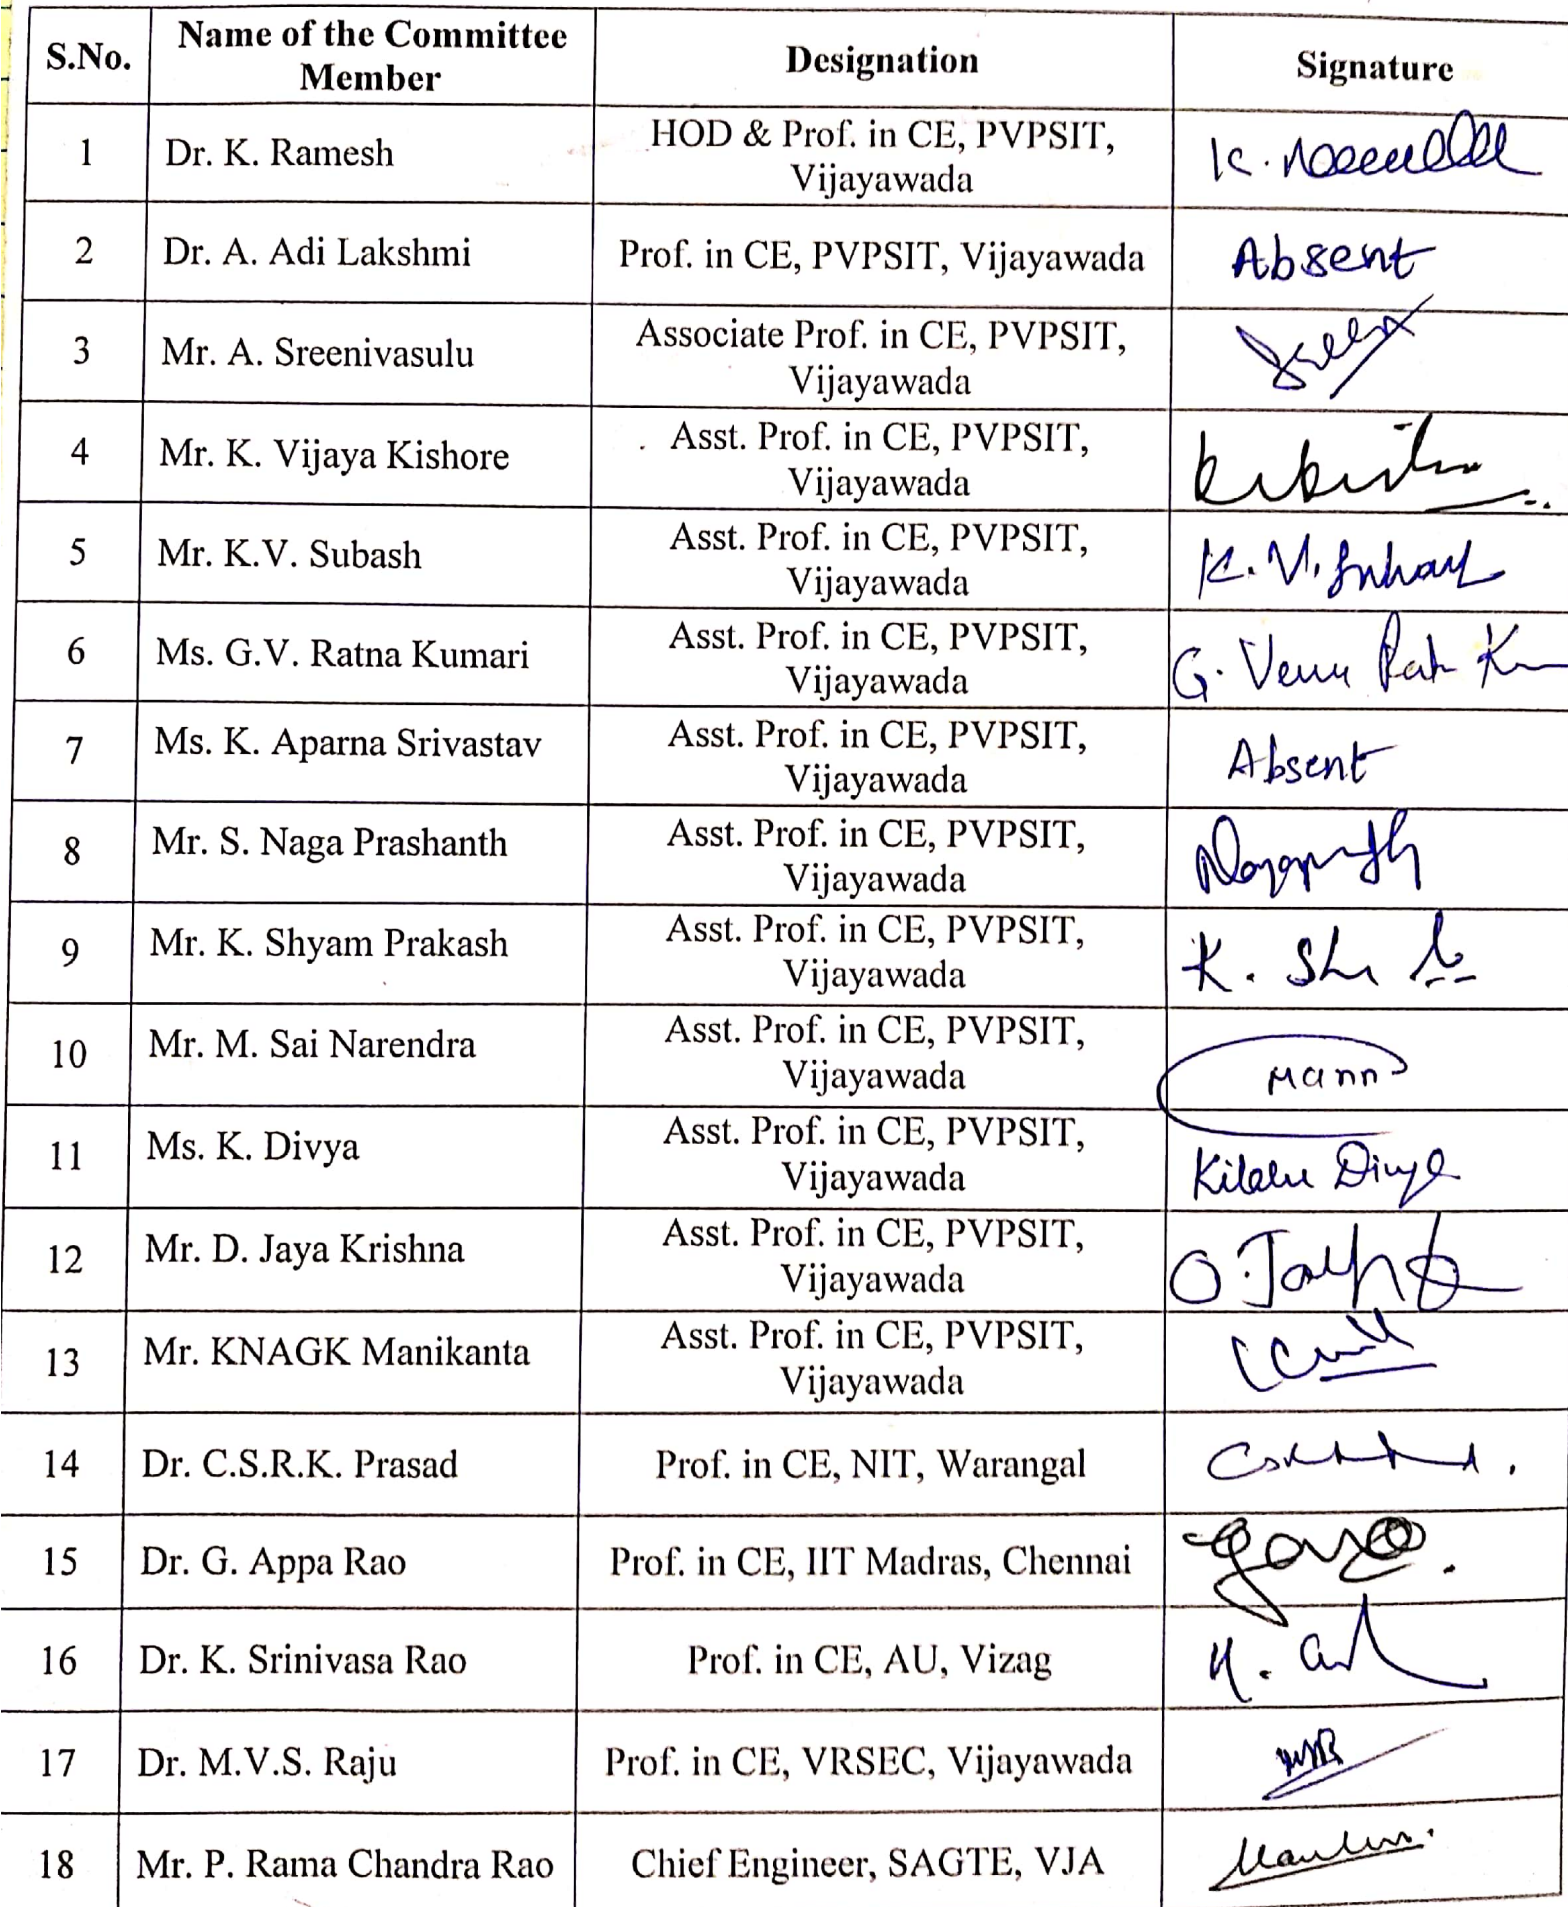 S.No.
Name of the Committee
Member
Designation
Signature
1
Dr. K. Ramesh
HOD & Prof. in CE, PVPSIT,
Vijayawada
2
Dr. A. Adi Lakshmi
Prof. in CE, PVPSIT, Vijayawada
Absent
3
Mr. A. Sreenivasulu
Associate Prof. in CE, PVPSIT,
Vijayawada
4
Mr. K. Vijaya Kishore
Asst. Prof. in CE, PVPSIT,
Vijayawada
5
Mr. K.V. Subash
Asst. Prof. in CE, PVPSIT,
Vijayawada
K. V.
6
Ms. G.V. Ratna Kumari
Asst. Prof. in CE, PVPSIT,
Vijayawada
G.
7
Ms. K. Aparna Srivastav
Asst. Prof. in CE, PVPSIT,
Vijayawada
Absent
8
Mr. S. Naga Prashanth
Asst. Prof. in CE, PVPSIT,
Vijayawada
9
Mr. K. Shyam Prakash
Asst. Prof. in CE, PVPSIT,
Vijayawada
K.
10
Mr. M. Sai Narendra
Asst. Prof. in CE, PVPSIT,
Vijayawada
11
Ms. K. Divya
Asst. Prof. in CE, PVPSIT,
Vijayawada
12
Mr. D. Jaya Krishna
Asst. Prof. in CE, PVPSIT,
Vijayawada
13
Mr. KNAGK Manikanta
Asst. Prof. in CE, PVPSIT,
Vijayawada
14
Dr. C.S.R.K. Prasad
Prof. in CE, NIT, Warangal
15
Dr. G. Appa Rao
Prof. in CE, IIT Madras, Chennai
16
Dr. K. Srinivasa Rao
Prof. in CE, AU, Vizag
17
Dr. M.V.S. Raju
Prof. in CE, VRSEC, Vijayawada
18
Mr. P. Rama Chandra Rao
Chief Engineer, SAGTE, VJA